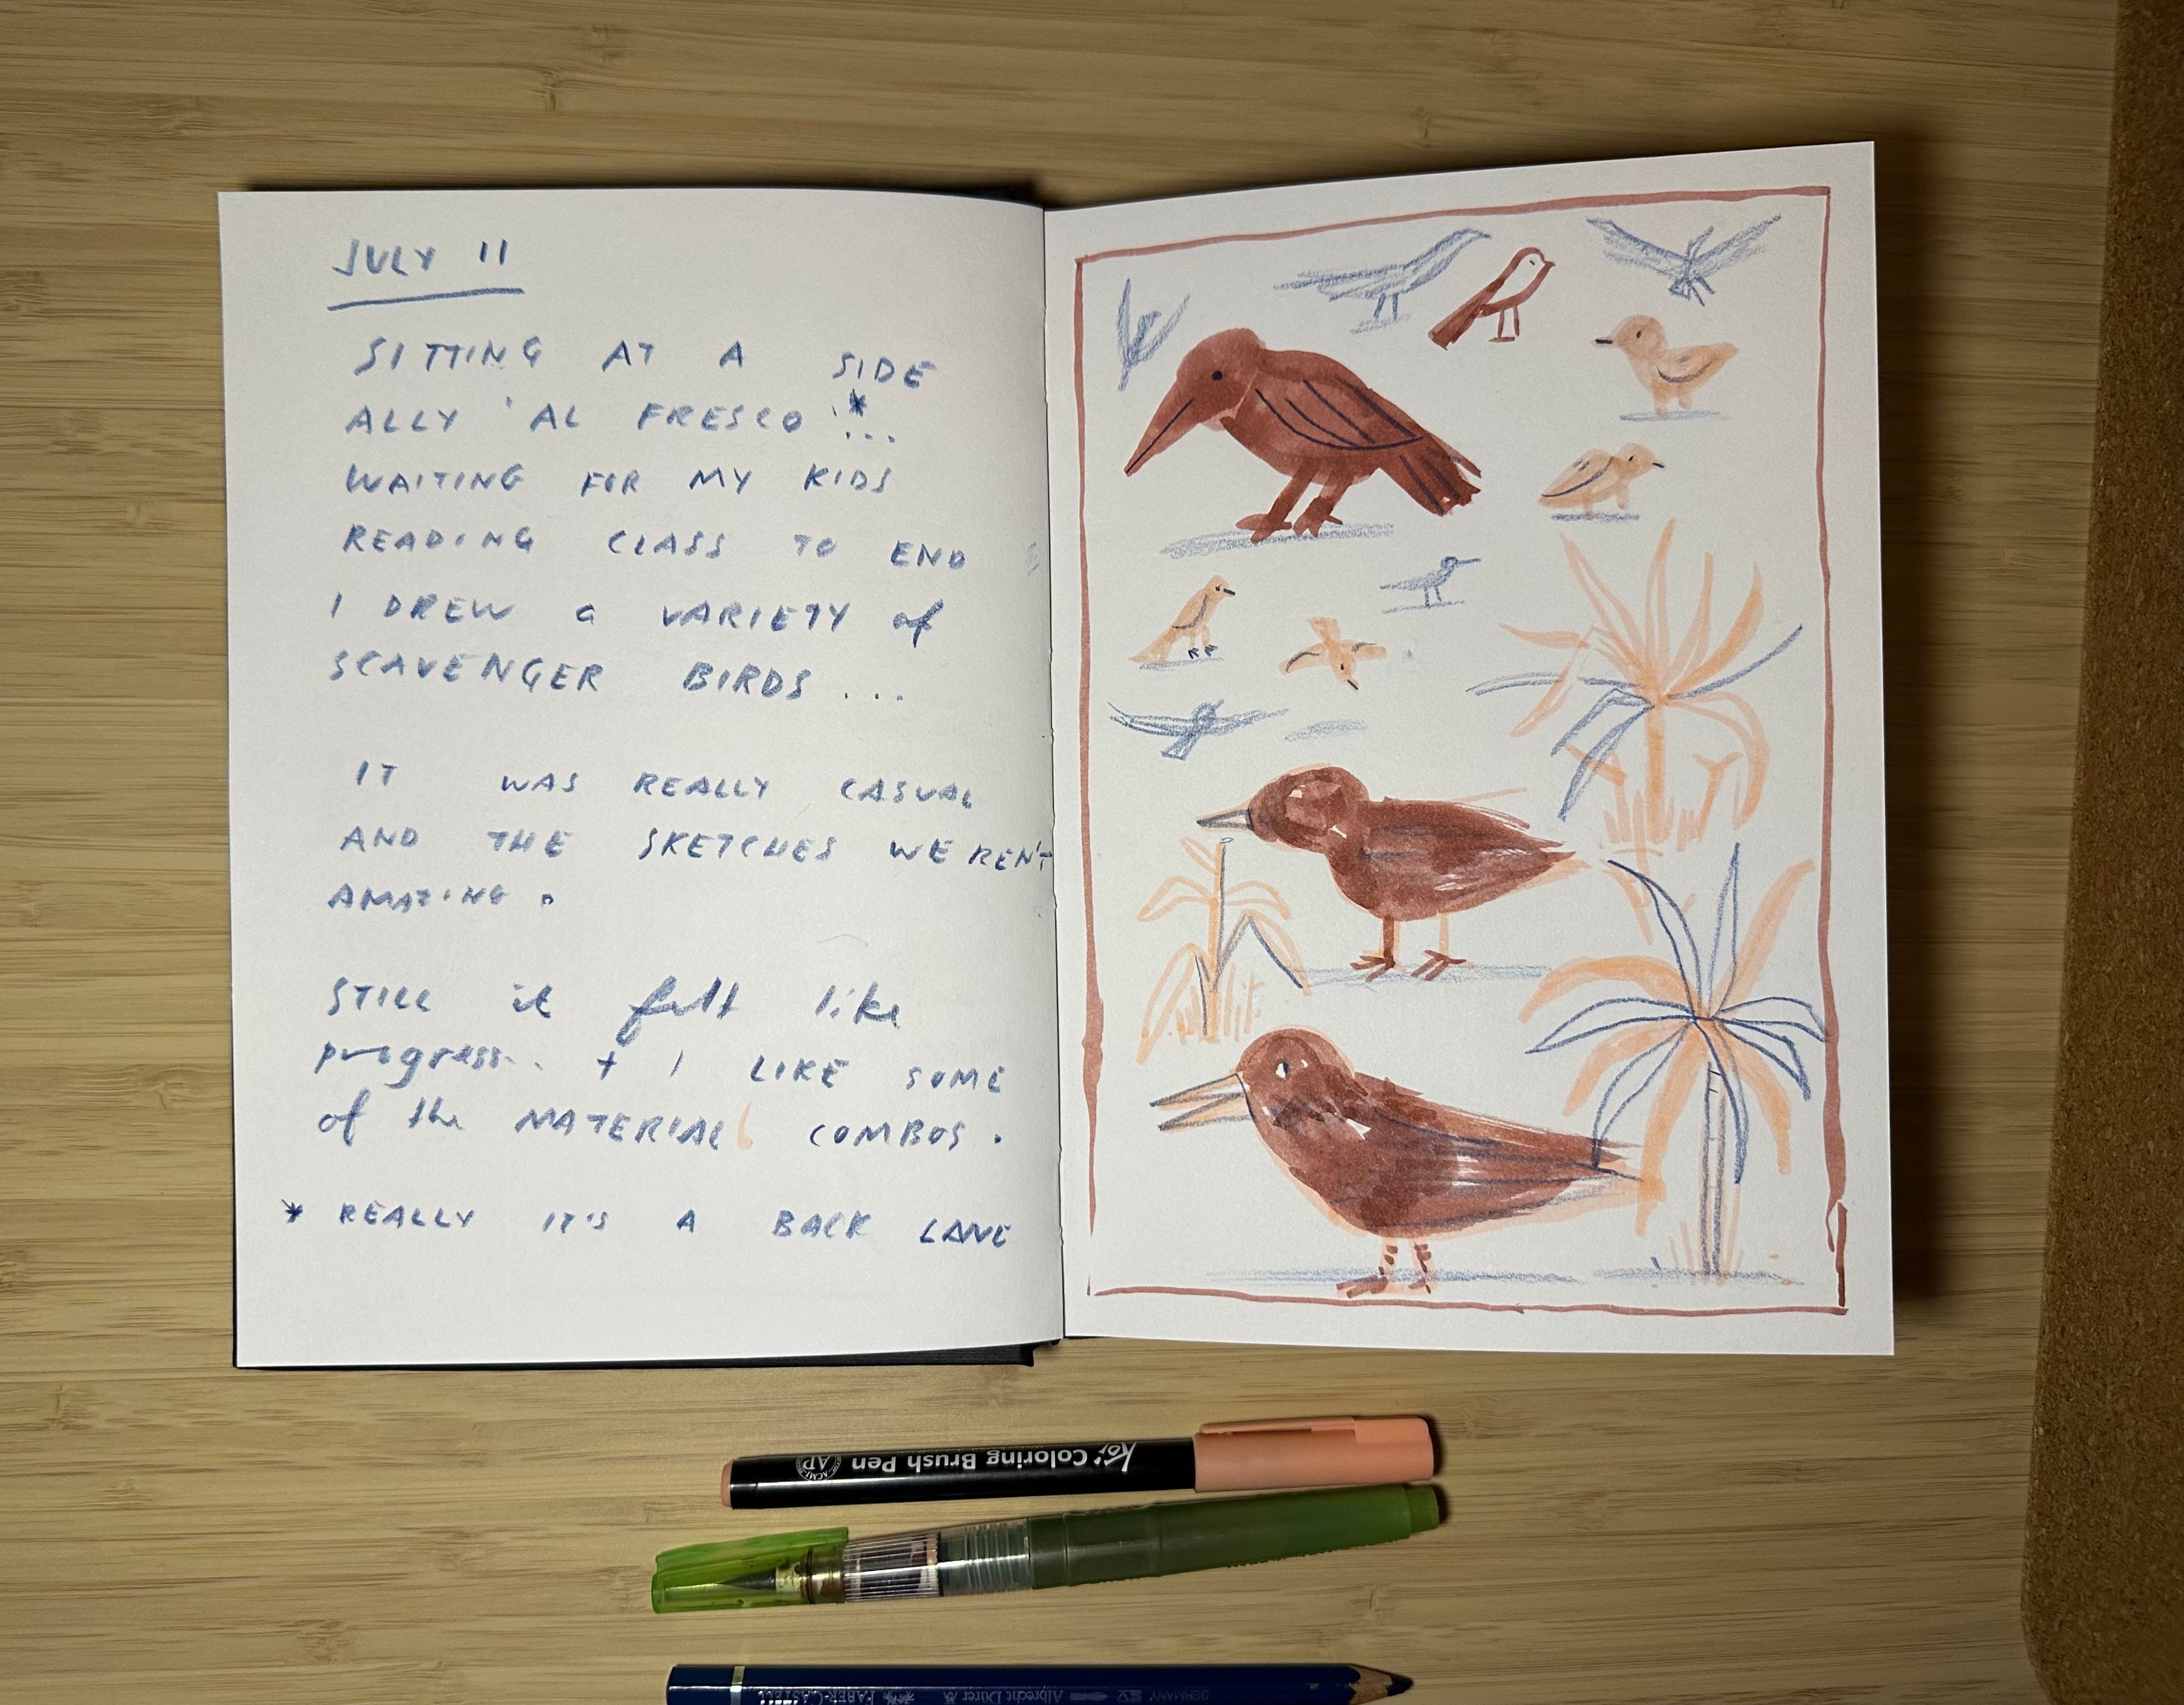 JULY 11
SITTING AT A SIDE
ALLY 'AL FRESCO'*...
WAITING FOR MY KIDS
READING CLASS TO END
I DREW a VARIETY of
SCAVENGER BIRDS...
IT WAS REALLY CASUAL
AND THE SKETCHES WEREN'T
AMAZING.
STILL it felt like
progress. + I LIKE SOME
of the MATERIAL COMBOS.
* REALLY IT'S A BACK LANE
Koi Coloring Brush Pen
AP
ACMI
GERMANY
Albrecht Dürer
FABER-CASTELL